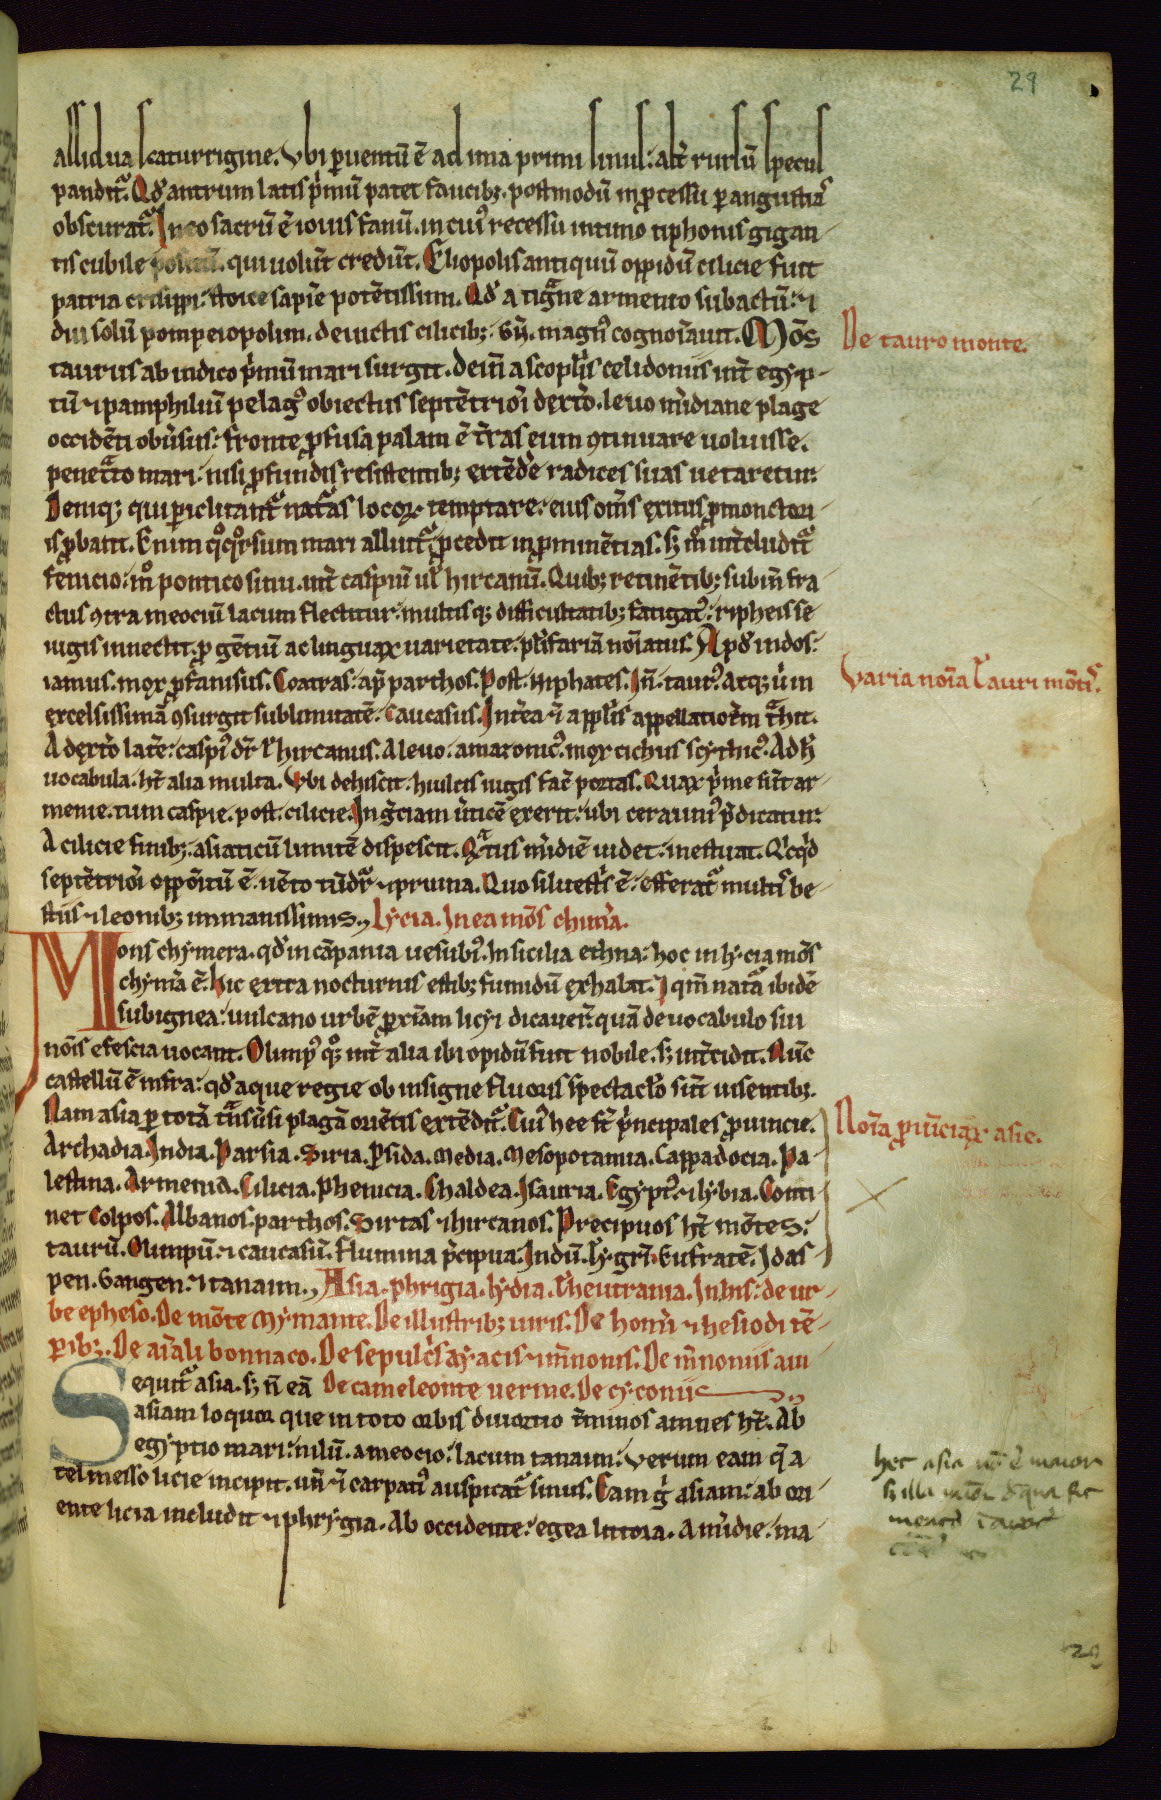 29
assidua scaturrigine. Vbi ꝑuentū ē ad ima primi sinus: alt̄ rursū specus
pandit᷑. Qd̓ antrum latis p̓mū patet faucibꝫ. postmodū in ꝓcessu ꝑ angustias
obscurat᷑. In eo sacrū ē iouis fanū. in cuiꝰ recessu intimo tiphonis gigan-
tis cubile positū. qui uolūt credūt. Eliopolis antiquū oppidū cilicie fuit
patria crisippi: stoice sapiē potētissimi. Qd̓ a tigͣne armenio subactū: ⁊
diu solū pompeiopolim. deuictis cilicibꝫ: magnꝰ cognoīauit. Mōs
De tauro monte.
taurus ab indico p̓mū mari surgit. dein̄ a scopl̓is celidoniis int̄ egyp-
tū ⁊ pamphiliū pelagꝰ obiectus septētrioī dext̓o. leuo m̓idiane plage
occidēti obūsus: fronte ꝓfusa palam ē t̄ras eum ꝯtinuare uoluisse.
penetͣto mari. nisi ꝓfundis resistentibꝫ extēd̓e radices suas uetaretur.
Deniqꝫ qui ꝑiclitant᷑ nat᷑as locoꝝ temptare: eius om̄s exitus ꝓmonctori-
is ꝓbant. Enim qͦqͦrsum mari alluit᷑ ꝓcedit in ꝓminētias. sꝫ mͦ int̓cludit᷑
fenicio: mͦ pontico sinu. int̄ caspiū ul̓ hircanū. Quibꝫ retinētibꝫ subin̄ fra
ctus ꝯtra meociū lacum flectitur: multisqꝫ difficultatibꝫ fatigatꝰ: ripheis se
iugis innectit. ꝓ gētiū ac linguaꝝ uarietate. pl̓ifariā noīatus. Apd̓ indos:
iamus. mox ꝓfanisus. Coatras: ap̓ parthos. Post. niphates. In̄. taurꝰ. Atqꝫ u̓ in
Varia noīa tauri mōtis.
excelsissimā ꝯsurgit sublimitatē. Caucasus. Int̓ea ⁊ a ppl̓is appellatioēm tͣhit.
A dext̓o lat̓e: caspiꝰ dr̄ ul̓ hircanus. A leuo. amazonicꝰ. mox cichus scythicꝰ. Ad h̓
uocabula. ht̄ alia multa. Vbi dehiscit. hiulcis iugis fac̄ portas. Quaꝝ p̓me sūt ar-
menie. tum caspie. post. cilicie. In gͣciam u̓ticē exerit: ubi cerauniꝰ p̓dicatur.
A cilicie finibꝫ. asiaticū limitē dispescit. Qͣtus m̓idiē uidet. inestuat. Qͥcqͥd
septētrioī oppoītū ē. uēto tūdit᷑ ⁊ pruina. Quo siluest̓s ē: efferat᷑ multis be-
stiis ⁊ leonibꝫ immanissimis. Lycia. In ea mōs chim̓a.
Mons chymera. qd̓ in cāpania uesubiꝰ. In sicilia ethna: hoc in lycia mōs
chym̓a ē. hic extra nocturnis estibꝫ fumidū exhalat. ⁊ qm̄ natͣa ibidē
subignea: uulcano urbē ꝓxīam licyi dicauer̄: quā de uocabulo sui
noīs efescia uocant. Olimpꝰ qͦꝫ int̄ alia ibi opidū fuit nobile. sꝫ int̓cidit. Nūc
castellū ē infra: qd̓ aque regie ob insigne fluoris spectacl̓o sūt uisentibꝫ.
Nam asia ꝑ totā tͣnsūsi plagā oriētis extēdit᷑. Cuiꝰ hee st̄ p̓ncipales ꝓuincie.
Noīa ꝓuīciaꝝ asie.
Archadia. India. Parsia. Siria. ꝑsida. Media. Mesopotamia. Cappadocia. Pa-
lestina. Armenia. Cilicia. Phenicia. Chaldea. Isauria. Egyptꝰ. ⁊ lybia. Conti-
net Colpos. Albanos. parthos. Sirtas ⁊ hircanos. Precipuos ht̄ mōtes:
taurū. Olimpū. ⁊ caucasiū. flumina p̓cipua. Indū. Tygrī. Eufratē. Idas-
pen. Gangen. ⁊ tanaim. Asia. phrigia. lydia. Theutrania. In his: de ur-
be epheso. De mōte Mymante. De illustribꝫ uiris. De hom̓i ⁊ hesiodi tē-
poribꝫ. De aīali bonnaco. De sepulc̓s ayacis ⁊ mēnonis. De mēnoniis aui
Sequit᷑ asia. sꝫ n̄ eā De cameleonte uerme. De cyconiis
asiam loquor que in toto orbis diuortio t̓minos amnes ht̄. Ab
egyptio mari: nilū. a meocio: lacum tanaim: Verum eam qͣ a
telmesso licie incipit. un̄ ⁊ carpatiꝰ auspicat᷑ sinus. Eam g̓ asiam: ab ori-
ente licia includit ⁊ phrygia. Ab occidente: egea littora. A m̓idie: ma-
hec asia
ē maior
29